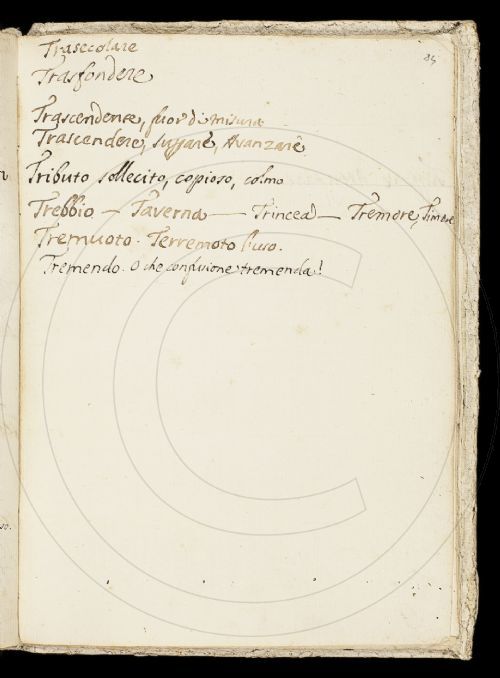 Trasecolare
Trasfondere
Trascendenze, fuor di misura
Trascendere, Avanzare
Tributo sollecito, copioso, colmo
Trebbio — Taverna — Trincea — Tremore, Timore
Tremuoto. Terremoto
Tremendo. O che confusione tremenda!